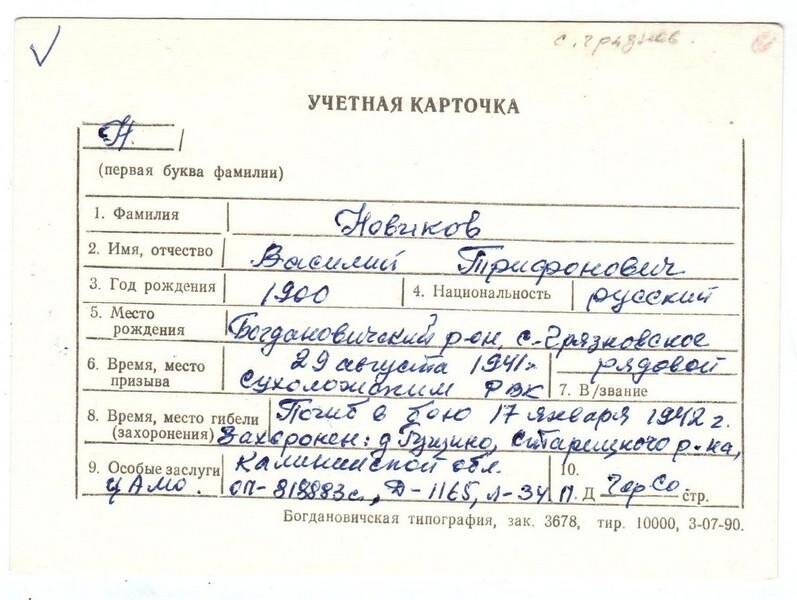 с. Грязнов.
УЧЕТНАЯ КАРТОЧКА
Н.
(первая буква фамилии)
1. Фамилия Новиков
2. Имя, отчество Василий Трифонович
3. Год рождения 1900 4. Национальность русский
5. Место рождения Богдановичский р-он, с. Грязновское
6. Время, место призыва 29 августа 1941г.
Сухоложским РВК
рядовой
7. В/звание
8. Время, место гибели (захоронения) Погиб в бою 17 января 1942 г.
Захоронен: д. Гущино, Старицкого р-на,
Калининской обл.
9. Особые заслуги
ЦАМО. оп-818883с., Д-1165, л-34.
10.
П. Д стр.
Богдановичская типография, зак. 3678, тир. 10000, 3-07-90.